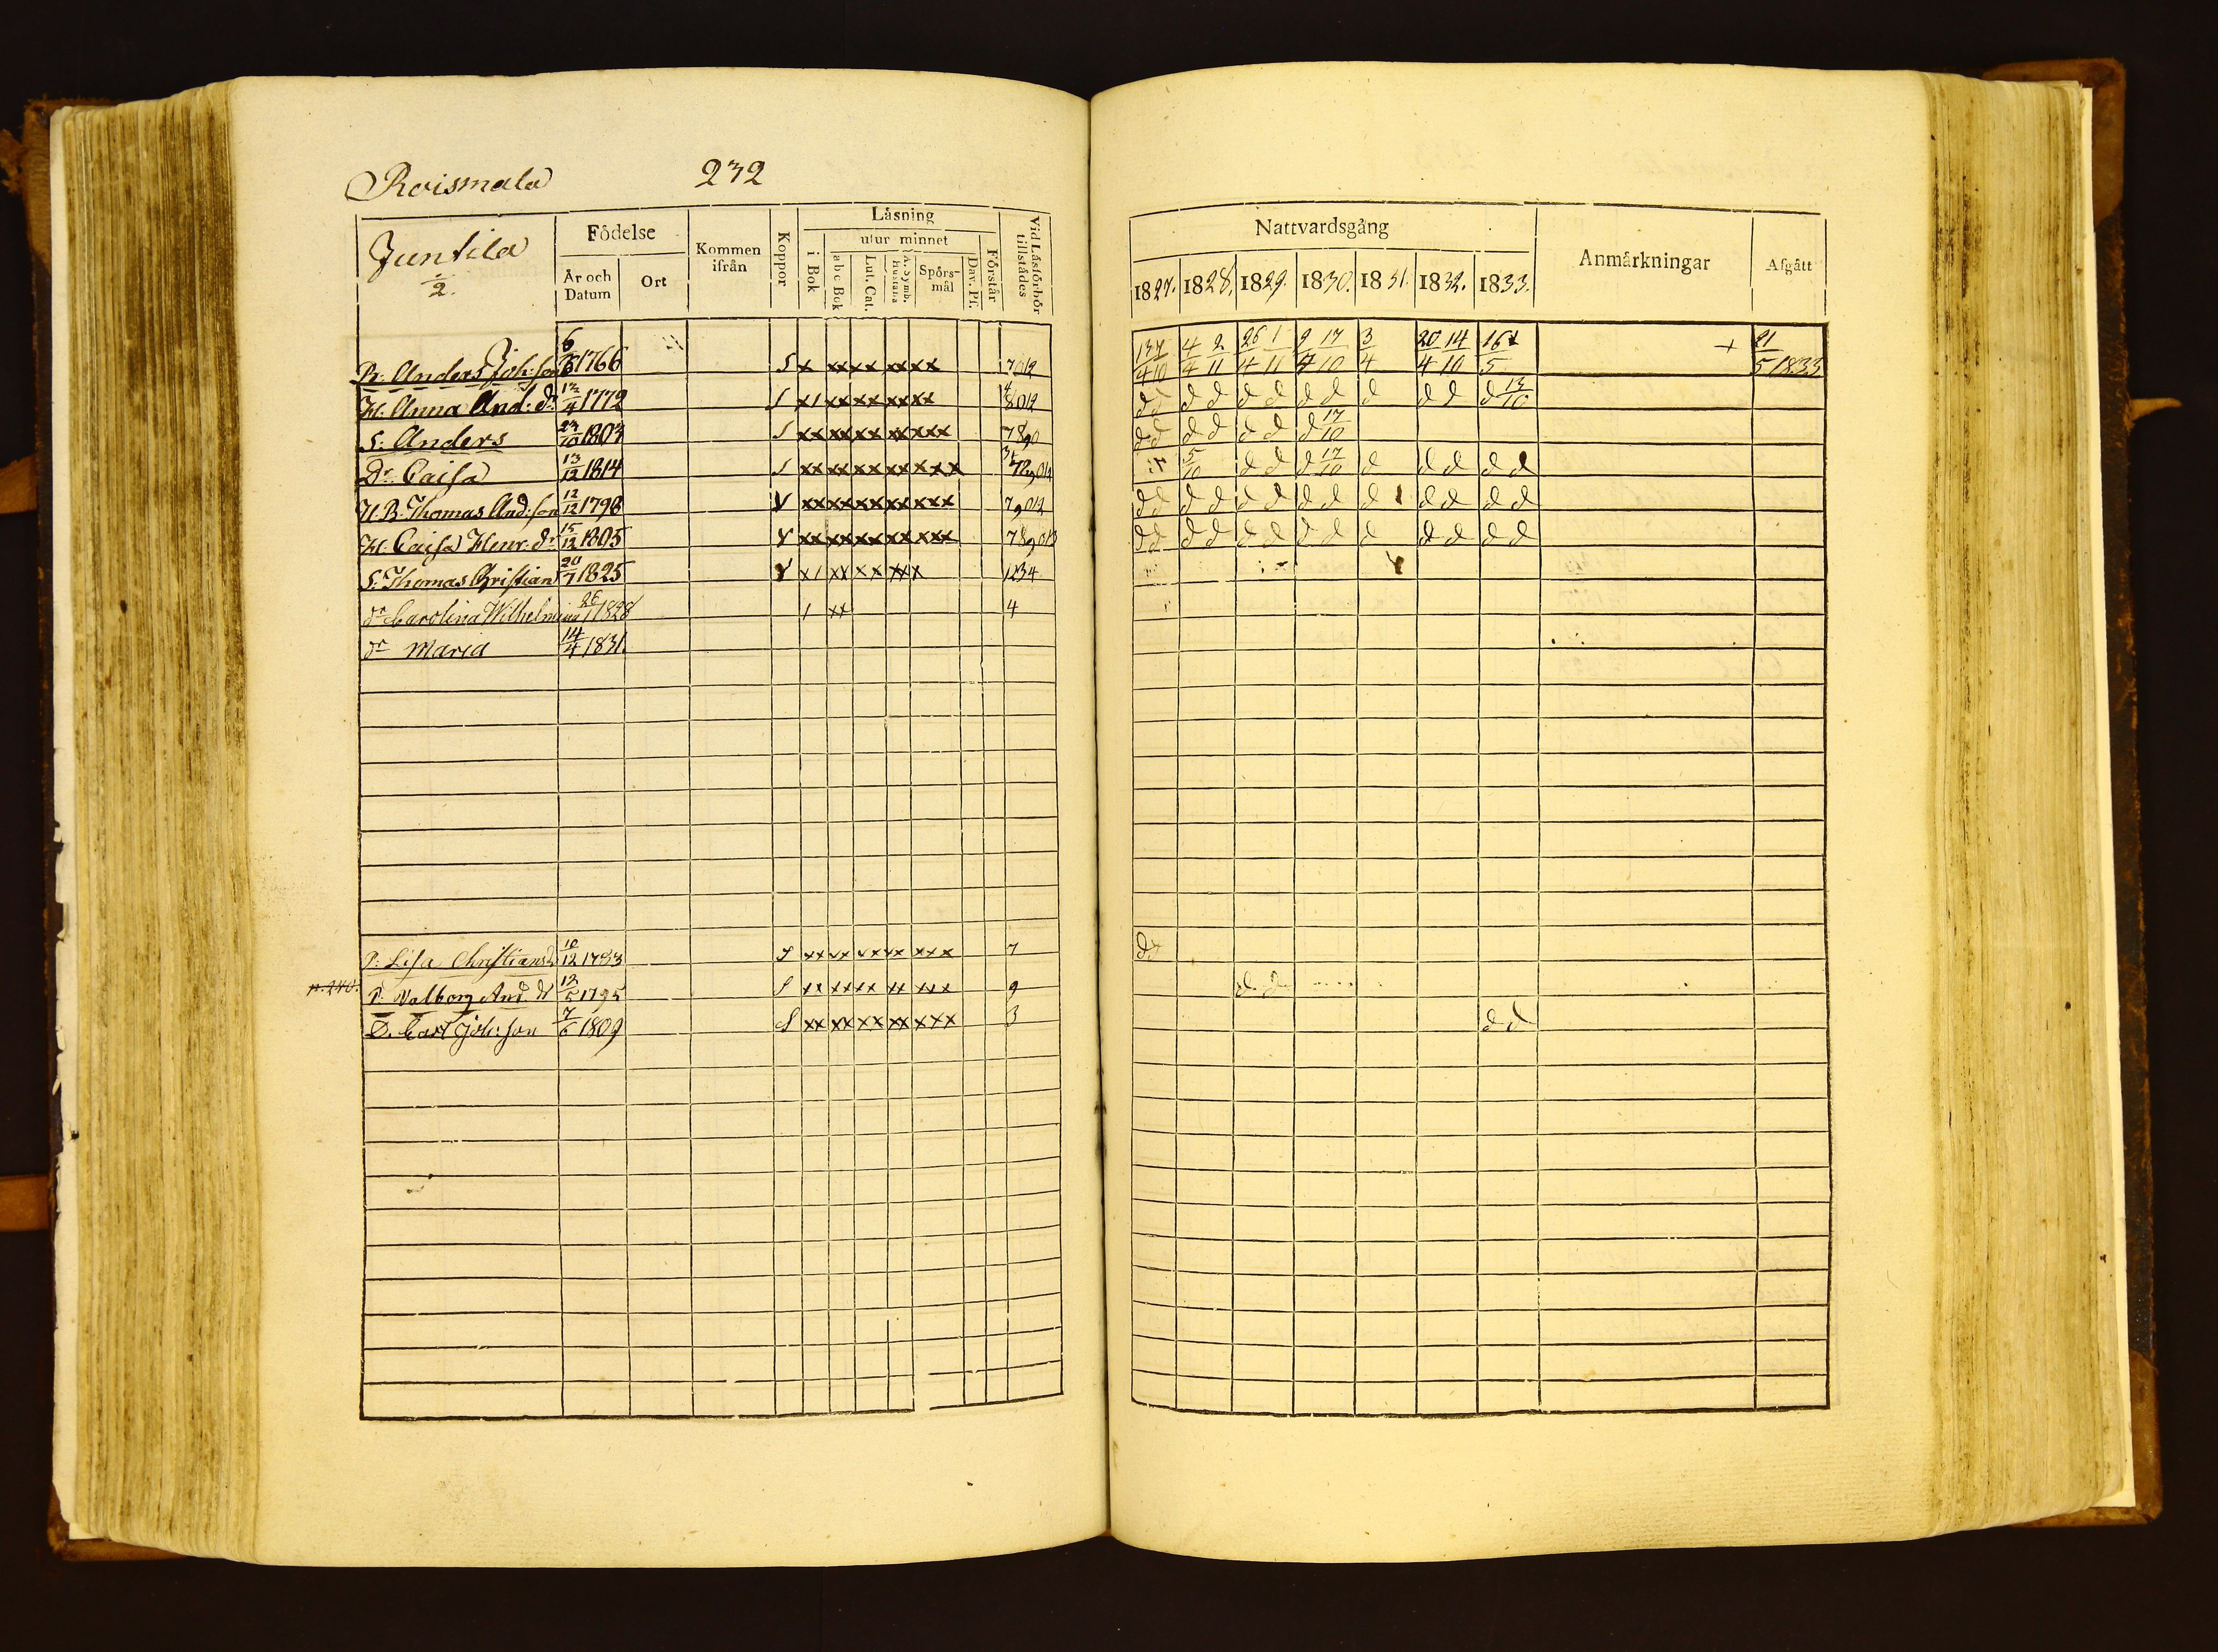 Roismala 232
Juntila
2.
Födelse
År och Datum
Ort
Kommen ifrån
Koppor
Läsning
i Bok
utur minnet
a b c Bok
Lut. Cat.
A. Symb. Hustafla
Spörsmål
Dav. Ps.
Förstår
Vid Läsförhör tillstädes
B: Anders Joh:son 6 1766 S x xx xx xx xx 7012
H. Anna And: dr 4 1772 S x 1 xx xx xx xx 8012
S: Anders 23/10 1803 S xx xx xx xx xxx 7890
Dr Caisa 13/12 1814 S xx xx xx xx xxx
M.B. Thomas And:son 12/12 1798 V xx xx xx xx xxx 79012
H. Caisa Henr. dr 15/12 1805 V xx xx xx xx xxx 789013
S. Thomas Christian 20/7 1825 V x 1 xx xx xxx 1234
dr Carolina Wilhelmina 26/1 1828 1 xx 4
dr Maria 14/4 1831.
P: Lisa Christiansd 10/12 1783 S xx xx xx xx xxx 7
p. 240. P: Walborg And. dr 12/5 1795 S xx xx xx xx xxx 9
D. Carl Joh:son 7/6 1809 S xx xx xx xx xxx 3
Nattvardsgång
Anmärkningar
Afgått
1827. 1828. 1829. 1830. 1831. 1832. 1833.
13 7 4 2 26 1 9 17 3 20 14 16 + + 21
4 10 4 11 4 11 4 10 4 4 10 5 5 1833
d d d d d d d d d d d d 13/10
d d d d d d d 17/10
5/10 d d d 17/10 d d d d d
d d d d d d d d d d d d d
d d d d d d d d d d d d d
d d
d. d
d d